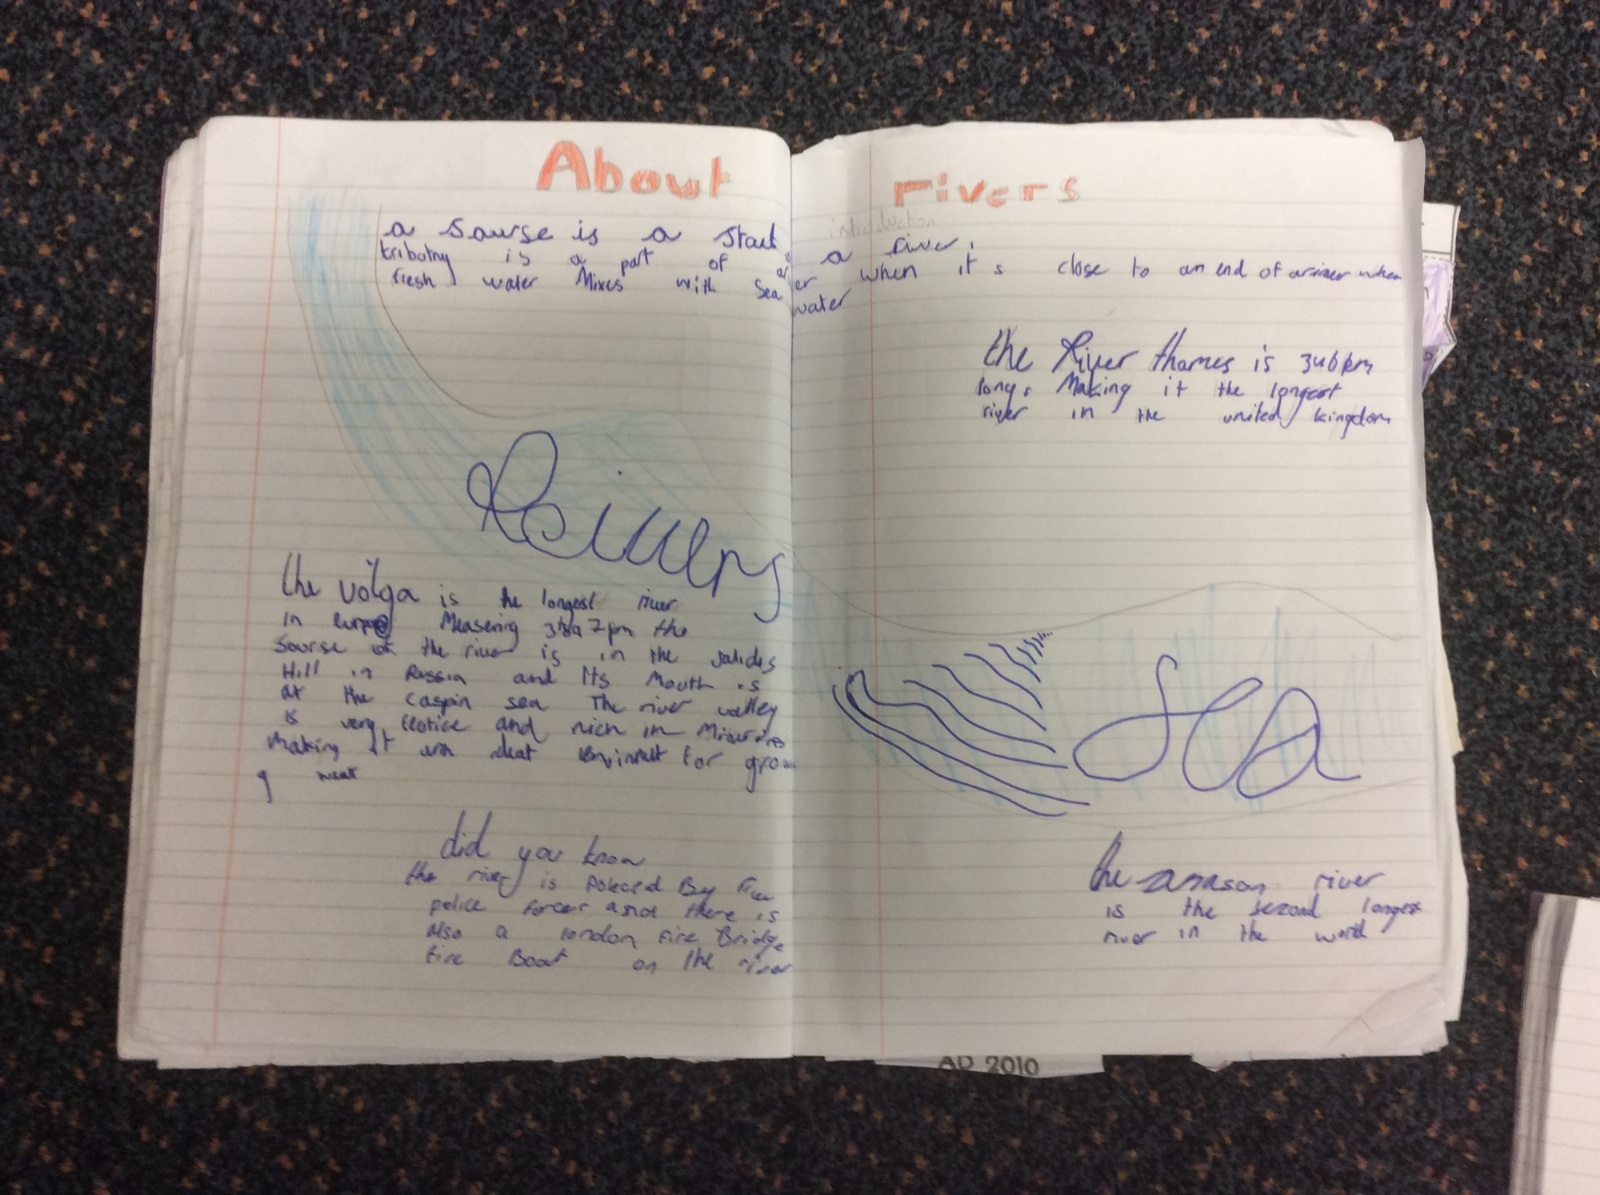 About rivers
introduction
a sourse is a start of a river.
tribotny is a part of a river when it s close to an end of a river when
fresh water Mixes with sea water
the River thames is 346km
long, Making it the longest
river in the united kingdom
Rivers
the volga is the longest river
in Europe Measering the
Sourse of the river is in the
Hill in Russia and Its Mouth is
at the caspin sea The river valley
is very and rich in
Making it for
weat
Sea
did you know
the river is By river
police forces and there is
also a london Fire Bridge
Fire Boat on the river
the amason river
is the second longest
river in the world
AD 2010